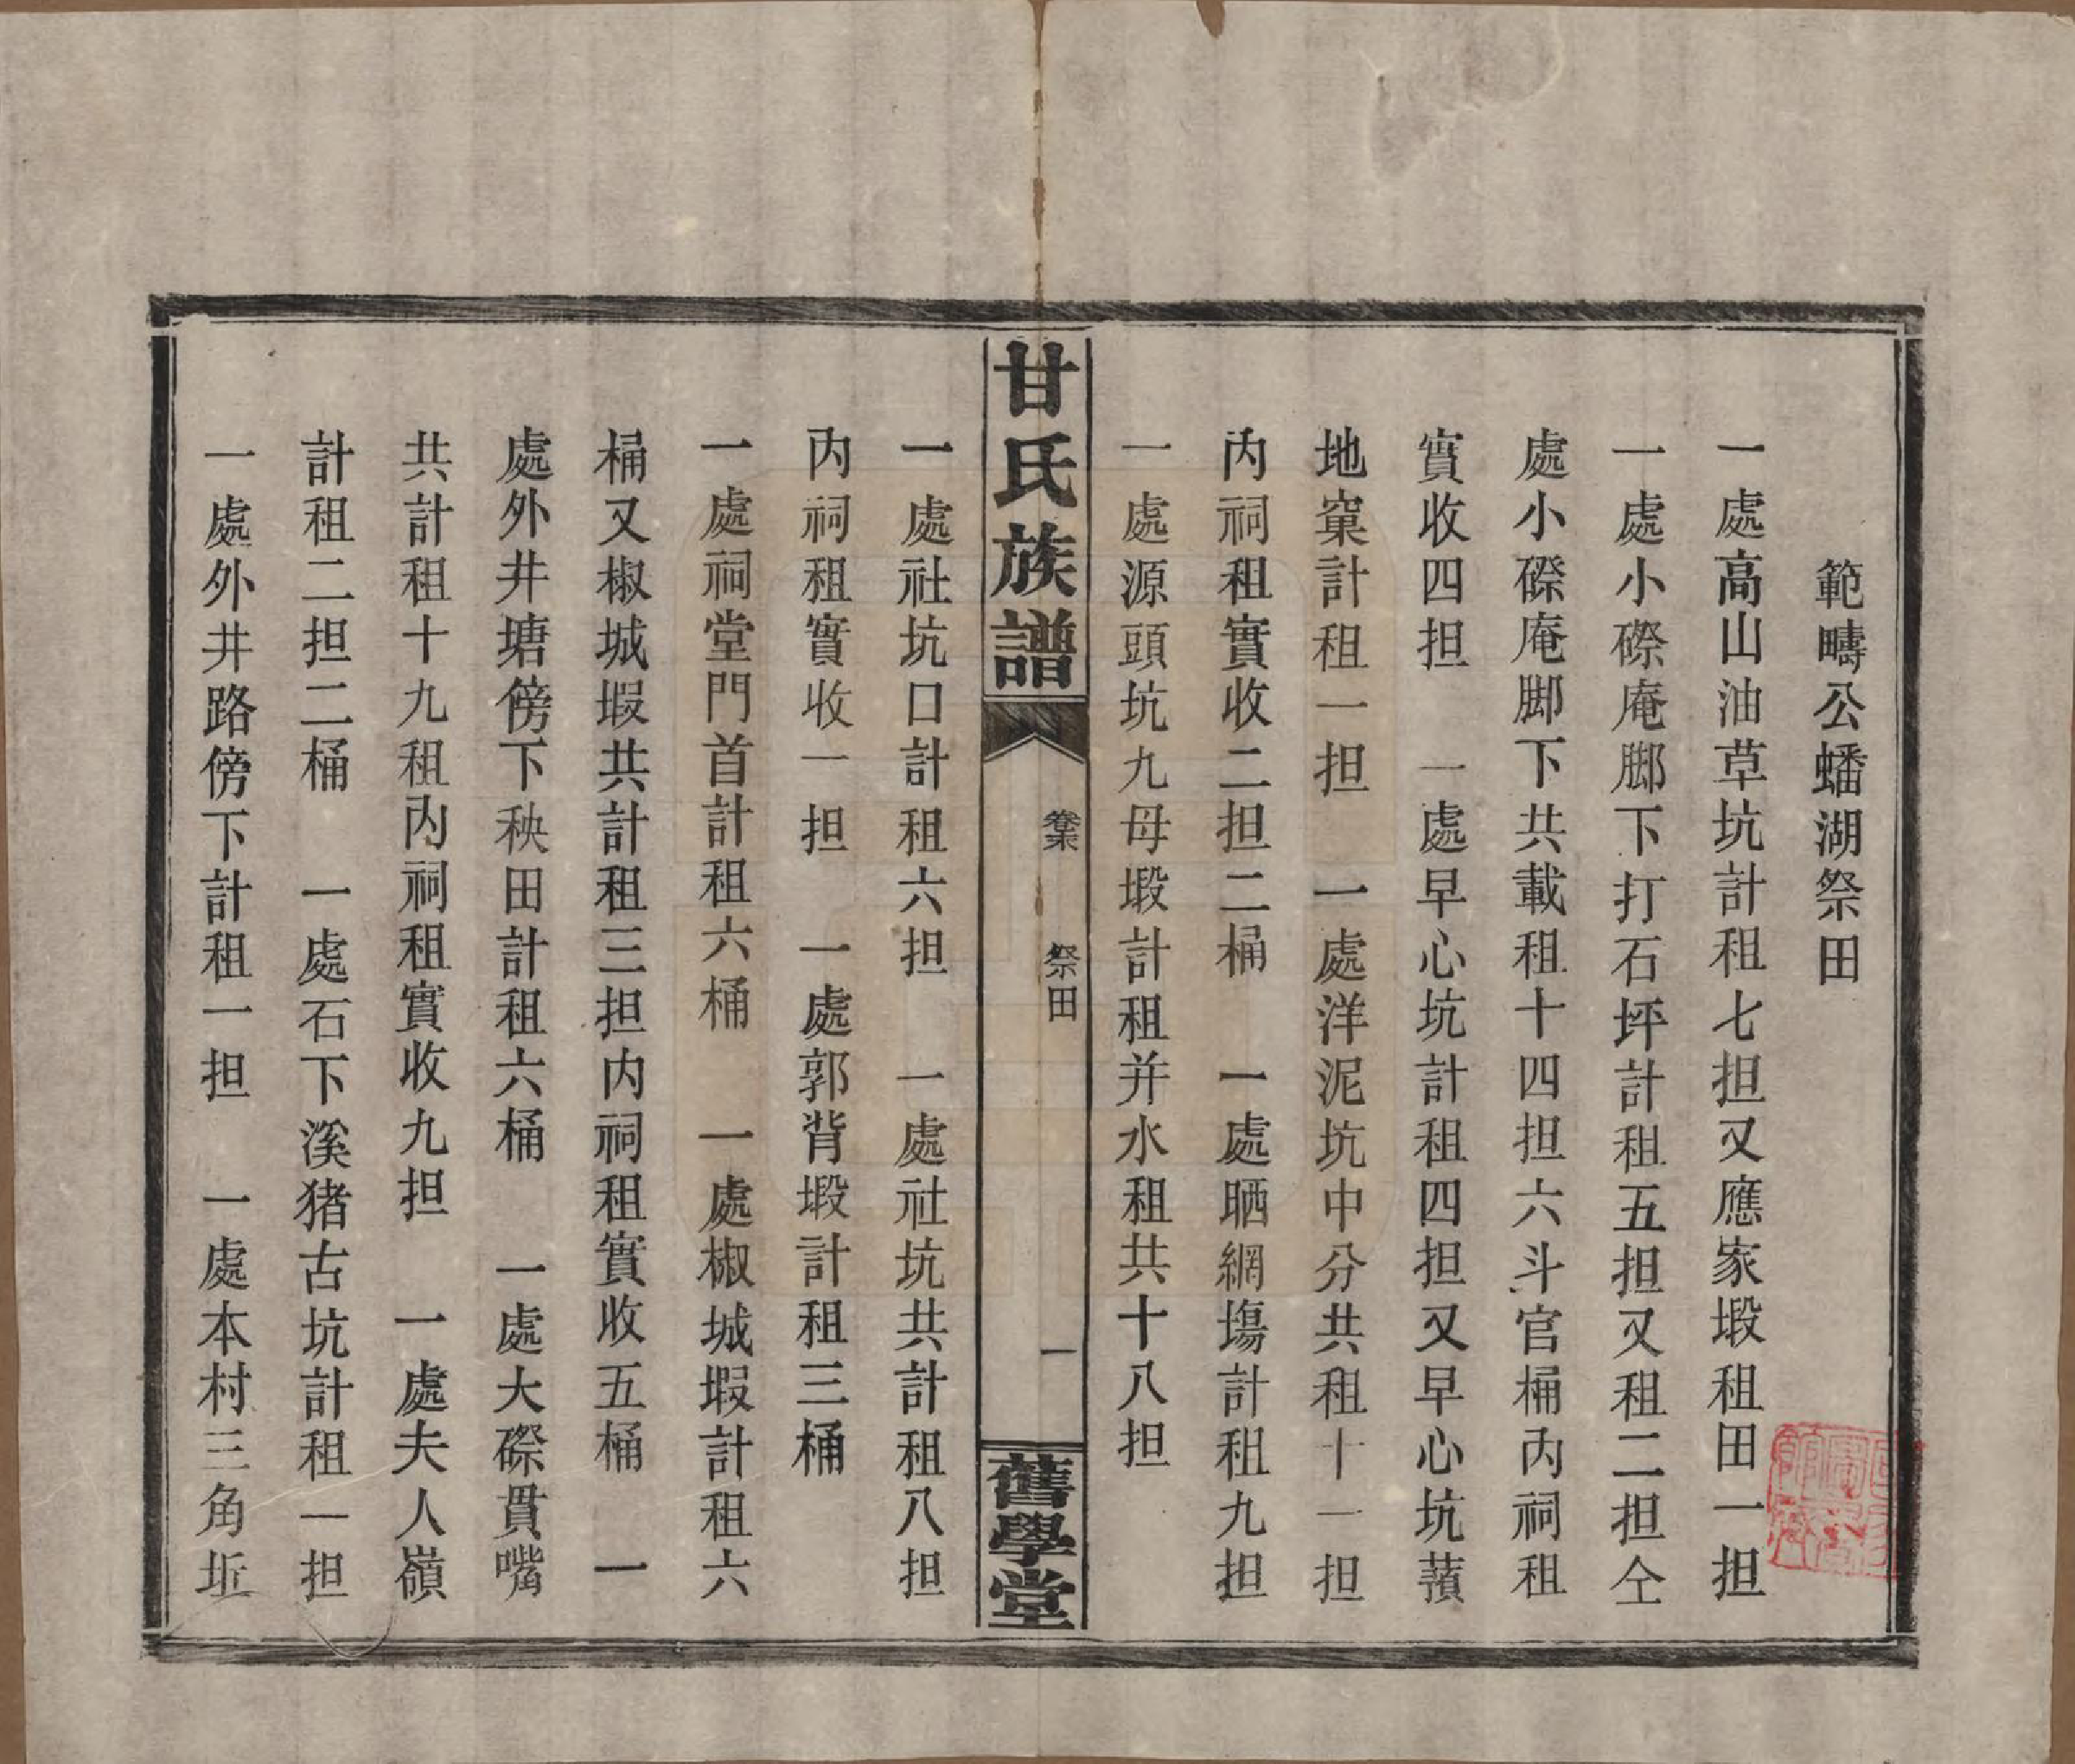 範疇公蟠湖祭田
一處高山油草坑計租七担又應家塅租田一担
一處小磜庵脚下打石坪計租五担又租二担仝
處小磜庵脚下共載租十四担六斗官桶內祠租
實收四担　一處早心坑計租四担又早心坑蕷
地窠計租一担　一處洋泥坑中分共租十一担
內祠租實收二担二桶　一處晒網塲計租九担
一處源頭坑九母塅計租并水租共十八担
甘氏族譜
卷末
祭田
一
舊學堂
一處社坑口計租六担　一處社坑共計租八担
內祠租實收一担　一處郭背塅計租三桶
一處祠堂門首計租六桶　一處椒城塅計租六
桶又椒城塅共計租三担內祠租實收五桶　一
處外井塘傍下秧田計租六桶　一處大磜貫嘴
共計租十九租內祠租實收九担　一處夫人嶺
計租二担二桶　一處石下溪猪古坑計租一担
一處外井路傍下計租一担　一處本村三角坵